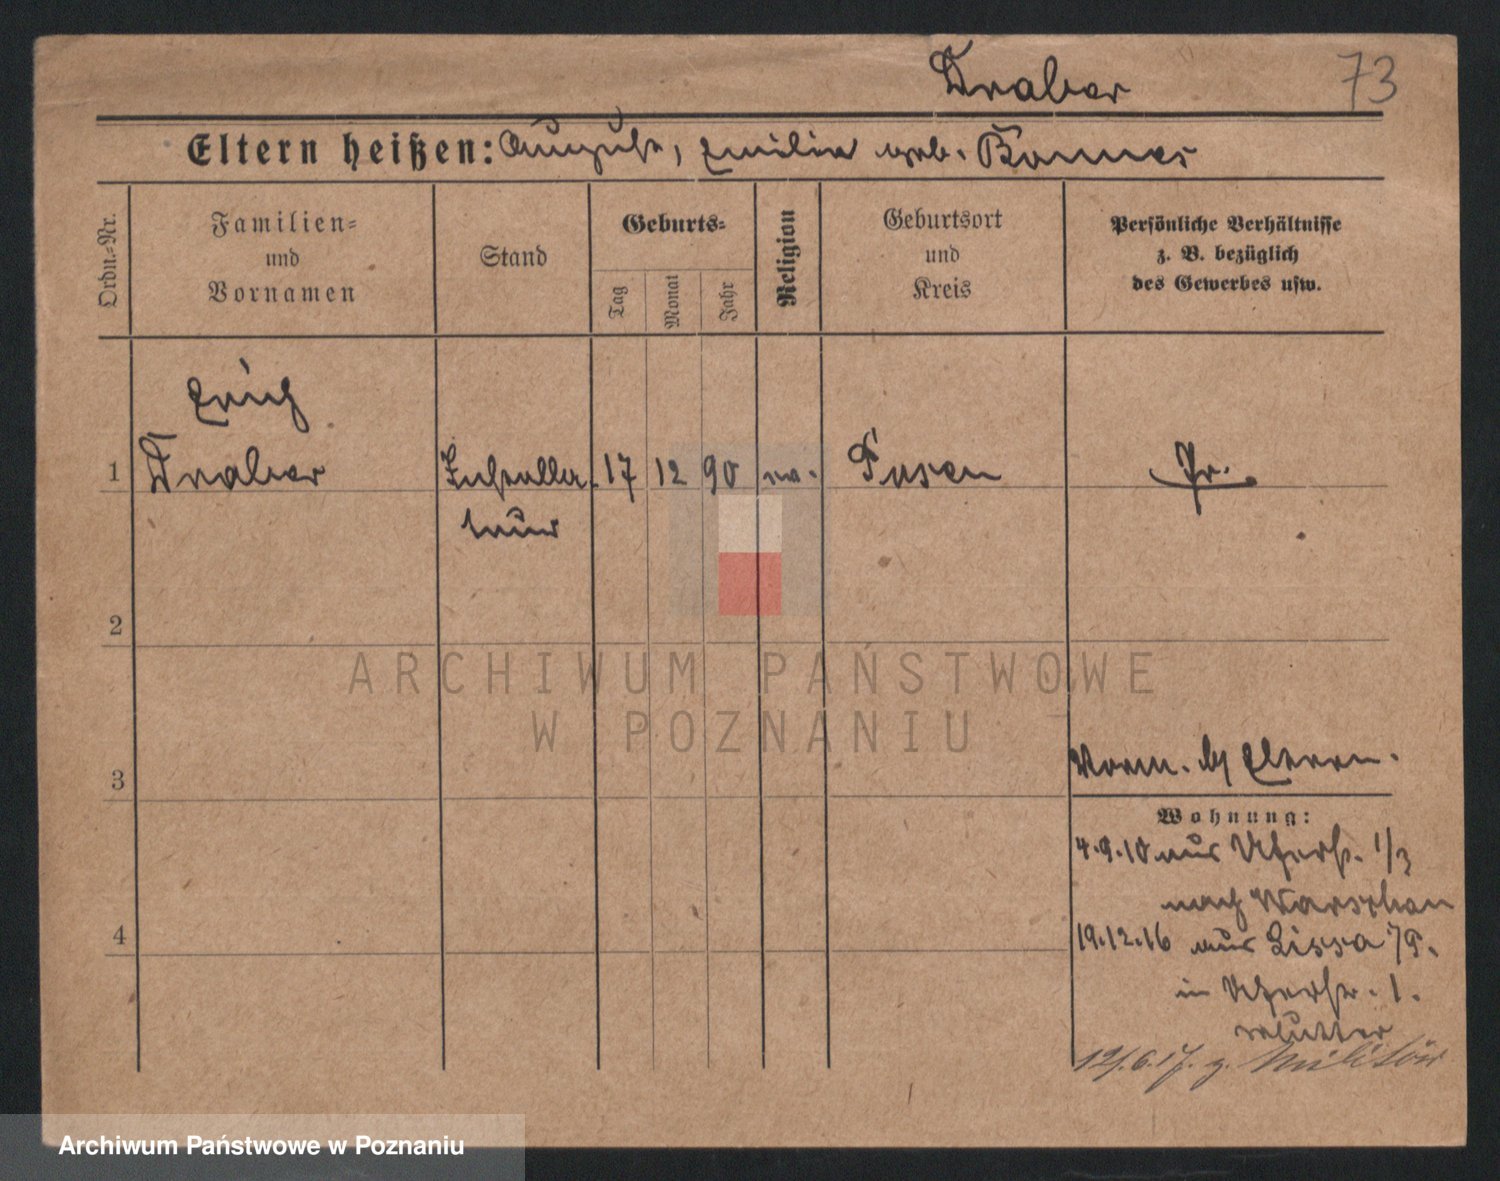 Draber 73
Eltern heißen: August, Emilie geb. Bonnes
Ordn.-Nr.
Familien-
und
Vornamen
Stand
Geburts-
Tag
Monat
Jahr
Religion
Geburtsort
und
Kreis
Persönliche Verhältnisse
z. B. bezüglich
des Gewerbes usw.
Erich
1 Draber 17 12 90 ev. Posen Pr.
teur
2
ARCHIWUM PAŃSTWOWE
W POZNANIU
Vorm. bei Eltern.
3
Wohnung:
4.9.10 aus Uferstr. 1/3
nach Warschau
4
19.12.16 aus Lissa /P.
in Uferstr. 1.
Mutter
12/.6.17. z. Militär
Archiwum Państwowe w Poznaniu